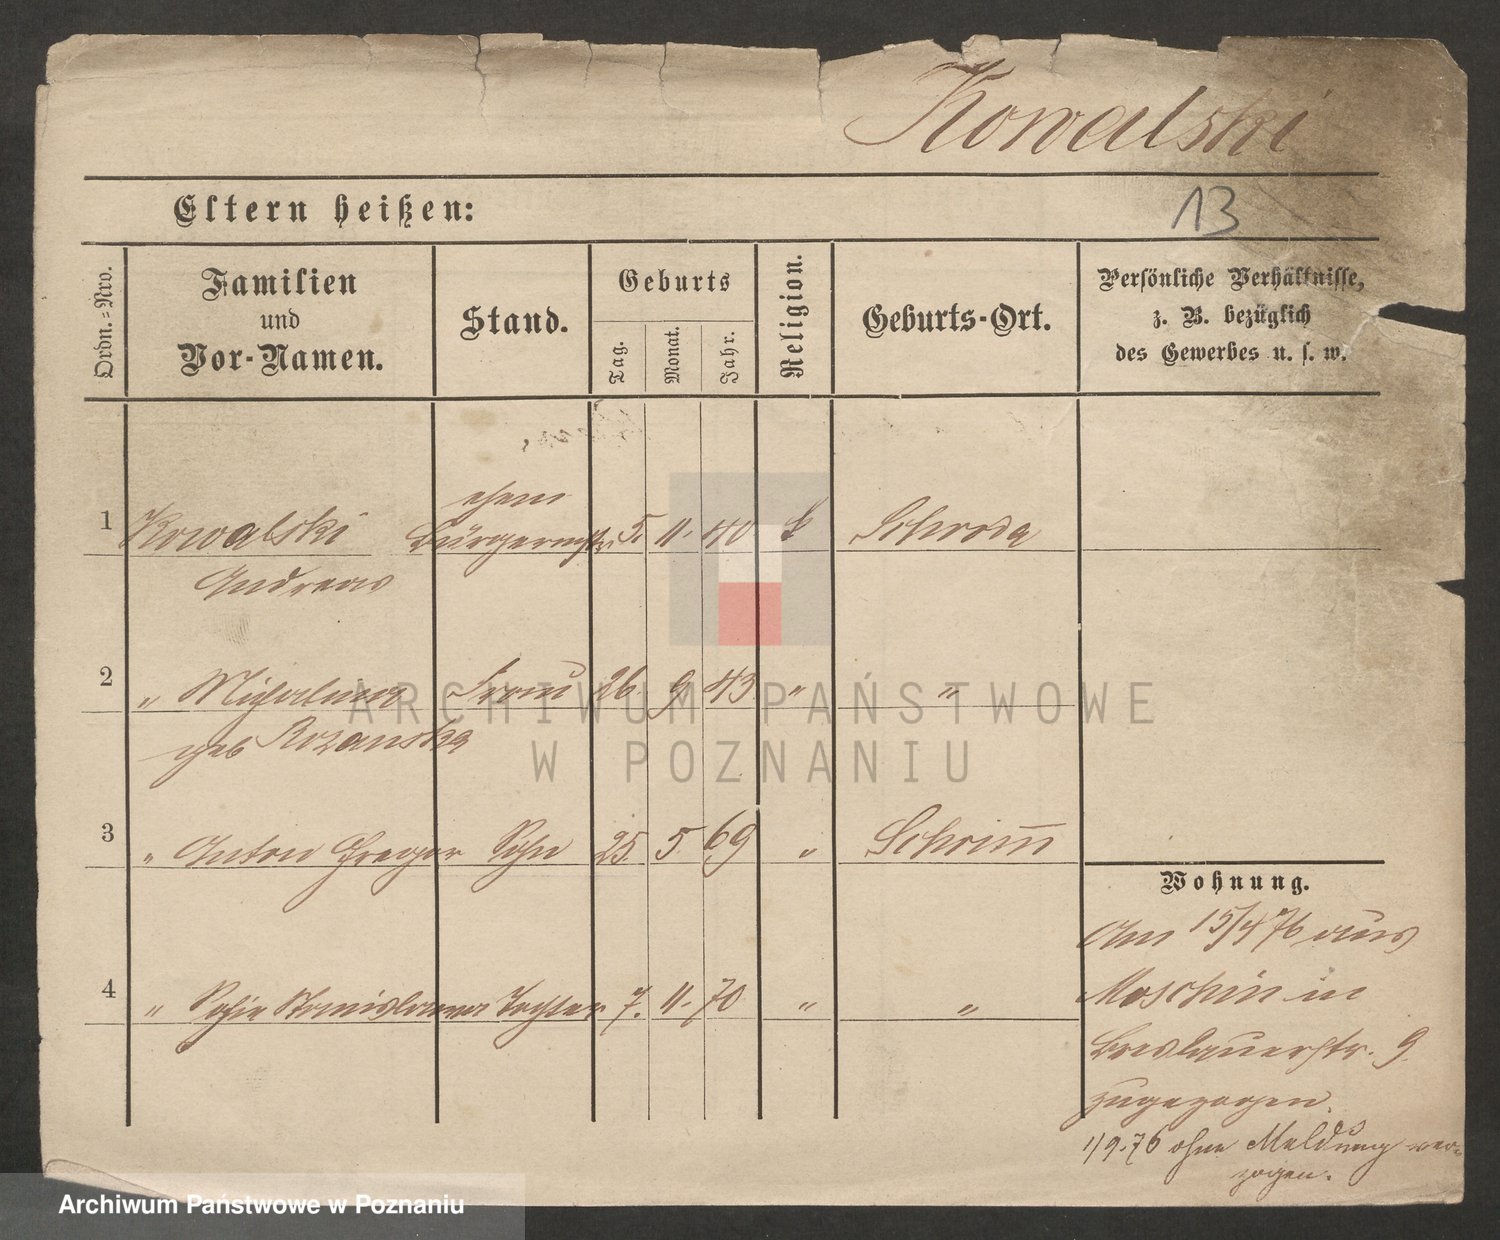 Kowalski
13
Eltern heißen:
Ordn.=Nro.
Familien
und
Vor-Namen.
Stand.
Geburts
Tag.
Monat.
Jahr.
Religion.
Geburts-Ort.
Persönliche Verhältnisse,
z. B. bezüglich
des Gewerbes u. s. w.
ehem
1 Kowalski Bürgermstr 5. 11. 40 k Schroda
Andreas
2 " Michalina Frau 26. 9. 43 " "
geb Rozanska
3 " Anton Gregor Sohn 25. 5. 69 " Schrimm
4 " Sofie Stanislawa Tochter 7. 11. 70 " "
Wohnung.
Am 15/4 76 aus
Moschin in
Breslauerstr. 9
zugezogen.
1/9.76 ohne Meldung ver-
zogen.
ARCHIWUM PAŃSTWOWE
W POZNANIU
Archiwum Państwowe w Poznaniu